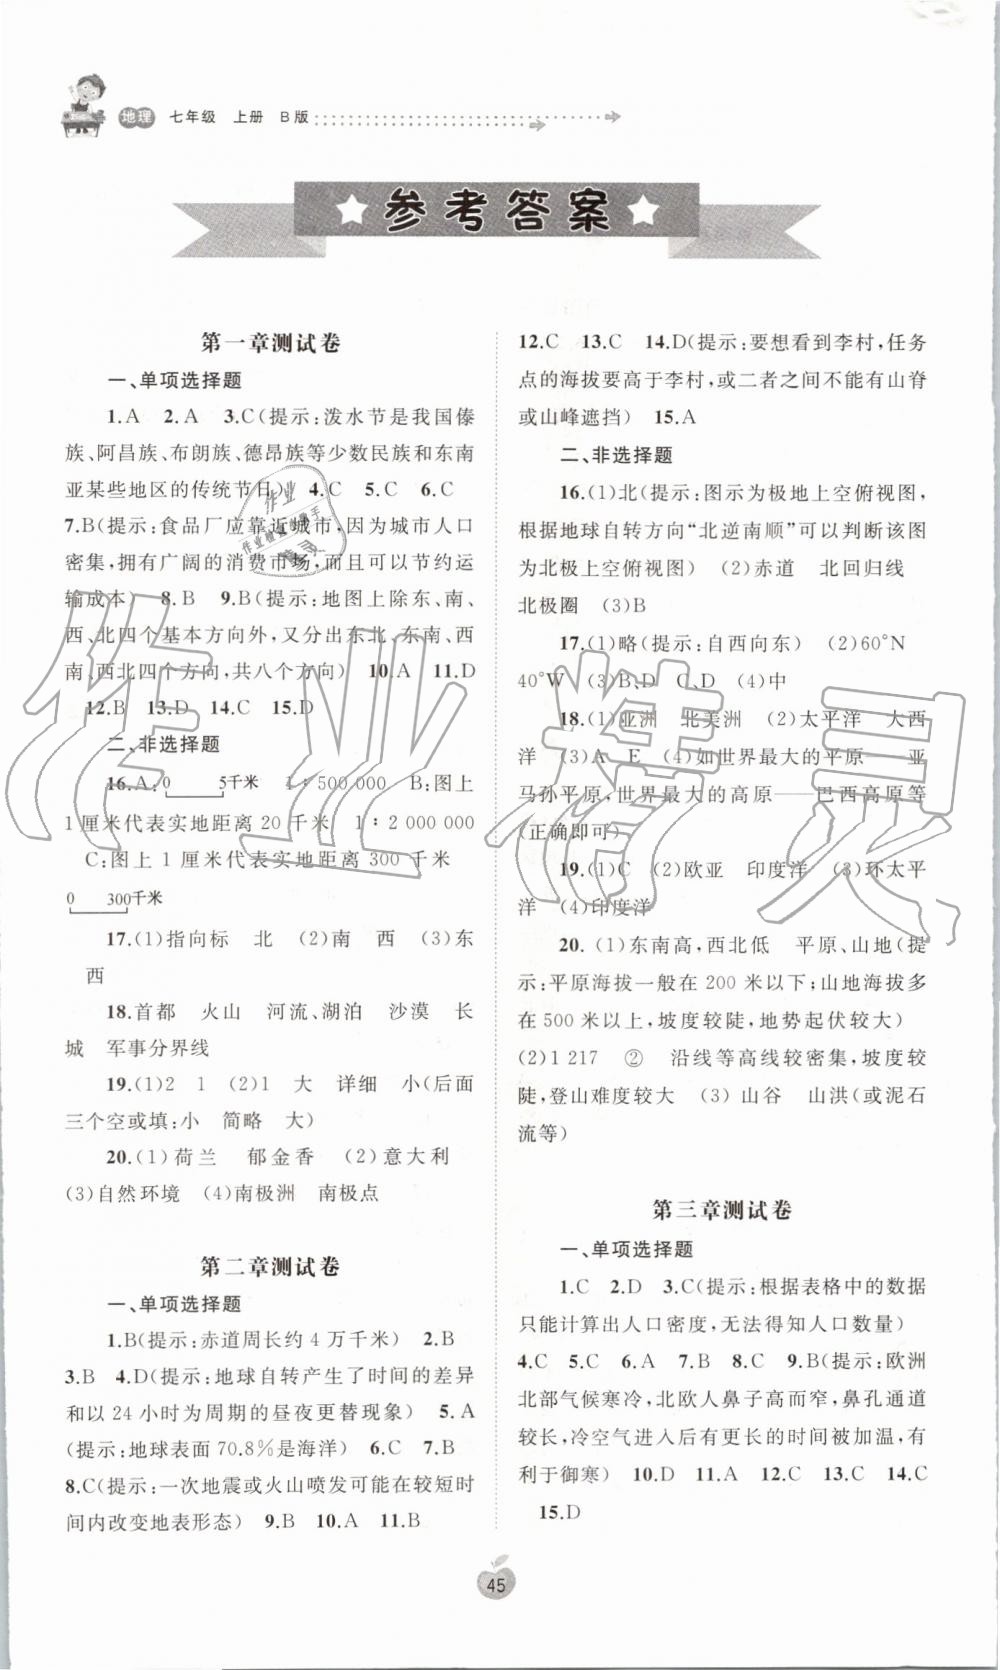 地理 七年级 上册 B版
参考答案
第一章测试卷
一、单项选择题
1.A 2.A 3.C(提示:泼水节是我国傣
族、阿昌族、布朗族、德昂族等少数民族和东南
亚某些地区的传统节日) 4.C 5.C 6.C
7.B(提示:食品厂应靠近城市,因为城市人口
密集,拥有广阔的消费市场,而且可以节约运
输成本) 8.B 9.B(提示:地图上除东、南、
西、北四个基本方向外,又分出东北、东南、西
南、西北四个方向,共八个方向) 10.A 11.D
12.B 13.D 14.C 15.D
二、非选择题
16.A:0 5千米 1∶500 000 B:图上
1厘米代表实地距离20千米 1∶2 000 000
C:图上1厘米代表实地距离300千米
0 300千米
17.(1)指向标 北 (2)南 西 (3)东
西
18.首都 火山 河流、湖泊 沙漠 长
城 军事分界线
19.(1)2 1 (2)1 大 详细 小(后面
三个空或填:小 简略 大)
20.(1)荷兰 郁金香 (2)意大利
(3)自然环境 (4)南极洲 南极点
第二章测试卷
一、单项选择题
1.B(提示:赤道周长约4万千米) 2.B
3.B 4.D(提示:地球自转产生了时间的差异
和以24小时为周期的昼夜更替现象) 5.A
(提示:地球表面70.8%是海洋) 6.C 7.B
8.C(提示:一次地震或火山喷发可能在较短时
间内改变地表形态) 9.B 10.A 11.B
12.C 13.C 14.D(提示:要想看到李村,任务
点的海拔要高于李村,或二者之间不能有山脊
或山峰遮挡) 15.A
二、非选择题
16.(1)北(提示:图示为极地上空俯视图,
根据地球自转方向“北逆南顺”可以判断该图
为北极上空俯视图) (2)赤道 北回归线
北极圈 (3)B
17.(1)略(提示:自西向东) (2)60°N
40°W (3)B、D C、D (4)中
18.(1)亚洲 北美洲 (2)太平洋 大西
洋 (3)A E (4)如世界最大的平原——亚
马孙平原,世界最大的高原——巴西高原等
(正确即可)
19.(1)C (2)欧亚 印度洋 (3)环太平
洋 (4)印度洋
20.(1)东南高,西北低 平原、山地(提
示:平原海拔一般在200米以下;山地海拔多
在500米以上,坡度较陡,地势起伏较大)
(2)1 217 ② 沿线等高线较密集,坡度较
陡,登山难度较大 (3)山谷 山洪(或泥石
流等)
第三章测试卷
一、单项选择题
1.C 2.D 3.C(提示:根据表格中的数据
只能计算出人口密度,无法得知人口数量)
4.C 5.C 6.A 7.B 8.C 9.B(提示:欧洲
北部气候寒冷,北欧人鼻子高而窄,鼻孔通道
较长,冷空气进入后有更长的时间被加温,有
利于御寒) 10.D 11.A 12.C 13.C 14.C
15.D
45
作业精灵